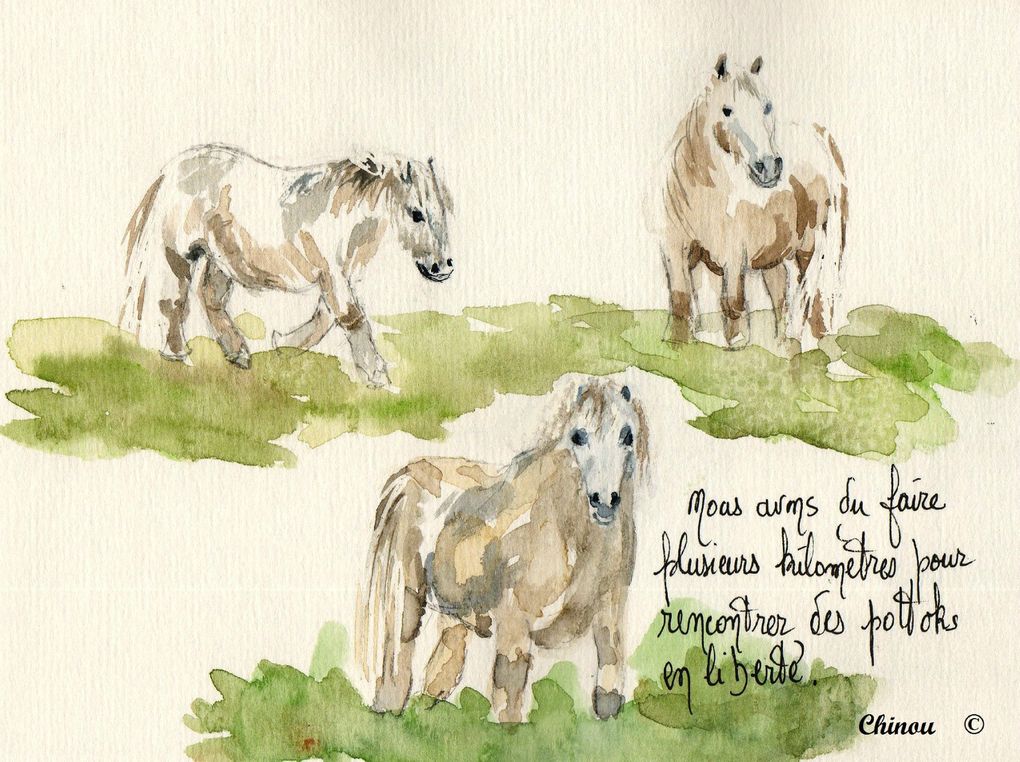 Nous avons du faire
plusieurs kilomètres pour
rencontrer des pottoks
en liberté.
Chinou ©